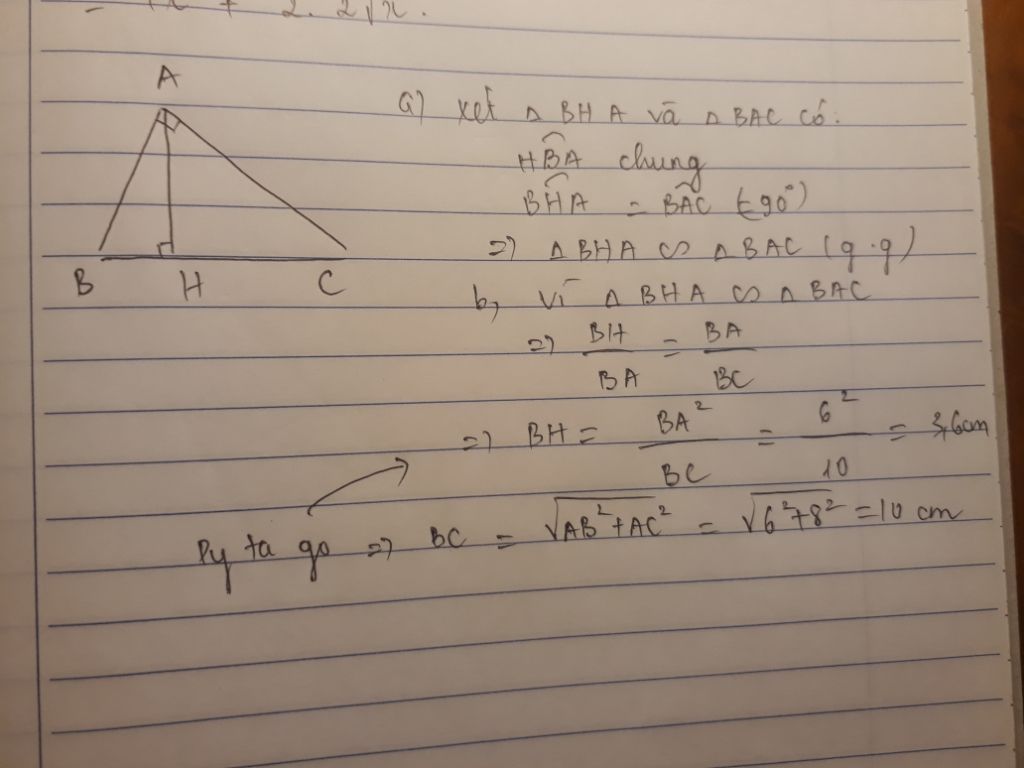 = 2. 2√x.
A
B H C
a) xét △ BHA và △ BAC có:
HBA chung
BHA = BAC (=90°)
=> △ BHA ∽ △ BAC (g.g)
b, vì △ BHA ∽ △ BAC
=> BH/BA = BA/BC
=> BH = BA²/BC = 6²/10 = 3,6cm
Py ta go => BC = √AB²+AC² = √6²+8² = 10 cm